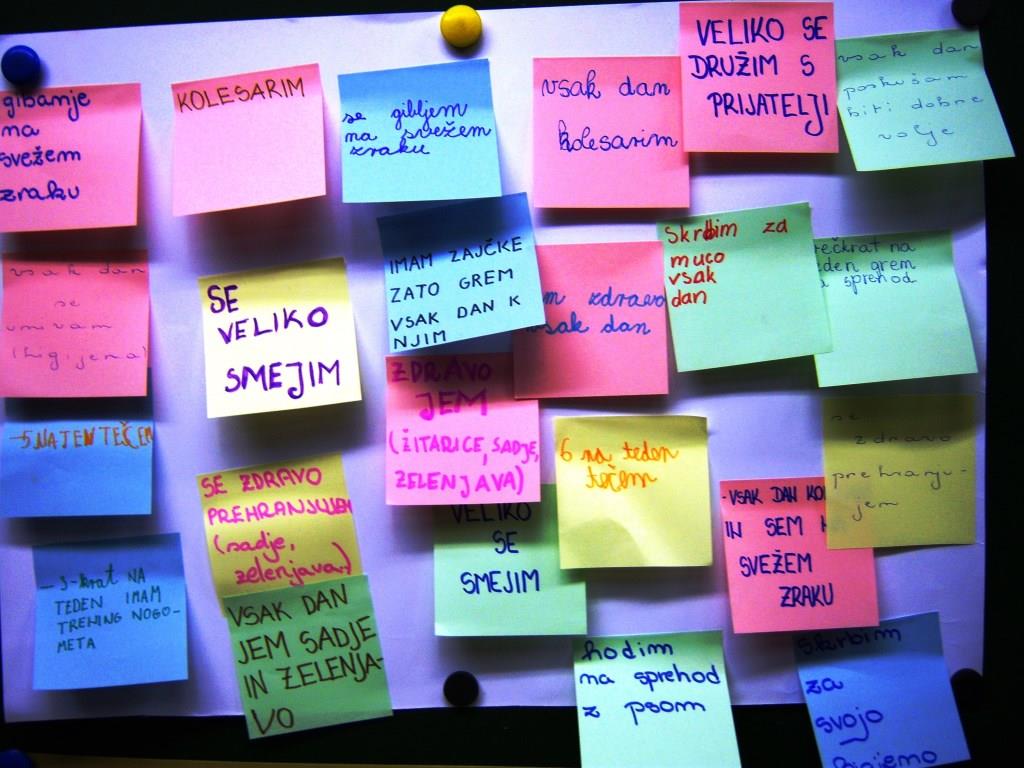 gibanje
na
svežem
zraku
KOLESARIM
se gibljem
na svežem
zraku
vsak dan
kolesarim
VELIKO SE
DRUŽIM S
PRIJATELJI
vsak dan
poskušam
biti dobre
volje
vsak dan
se
umivam
(higijena)
SE
VELIKO
SMEJIM
IMAM ZAJČKE
ZATO GREM
VSAK DAN K
NJIM
zdravo
vsak dan
Skrbim za
muco
vsak
dan
na
grem
sprehod
-5 NA TEN TEČEM
SE ZDRAVO
PREHRANJUJEM
(sadje,
zelenjava)
ZDRAVO
JEM
(ŽITARICE, SADJE,
ZELENJAVA)
6 na teden
tečem
se
zdravo
prehranju-
jem
-VSAK DAN
IN SEM
SVEŽEM
ZRAKU
VELIKO
SE
SMEJIM
-3-krat NA
TEDEN IMAM
TRENING NOGO-
META
VSAK DAN
JEM SADJE
IN ZELENJA-
VO
hodim
na sprehod
z psom
skrbim
za
svojo